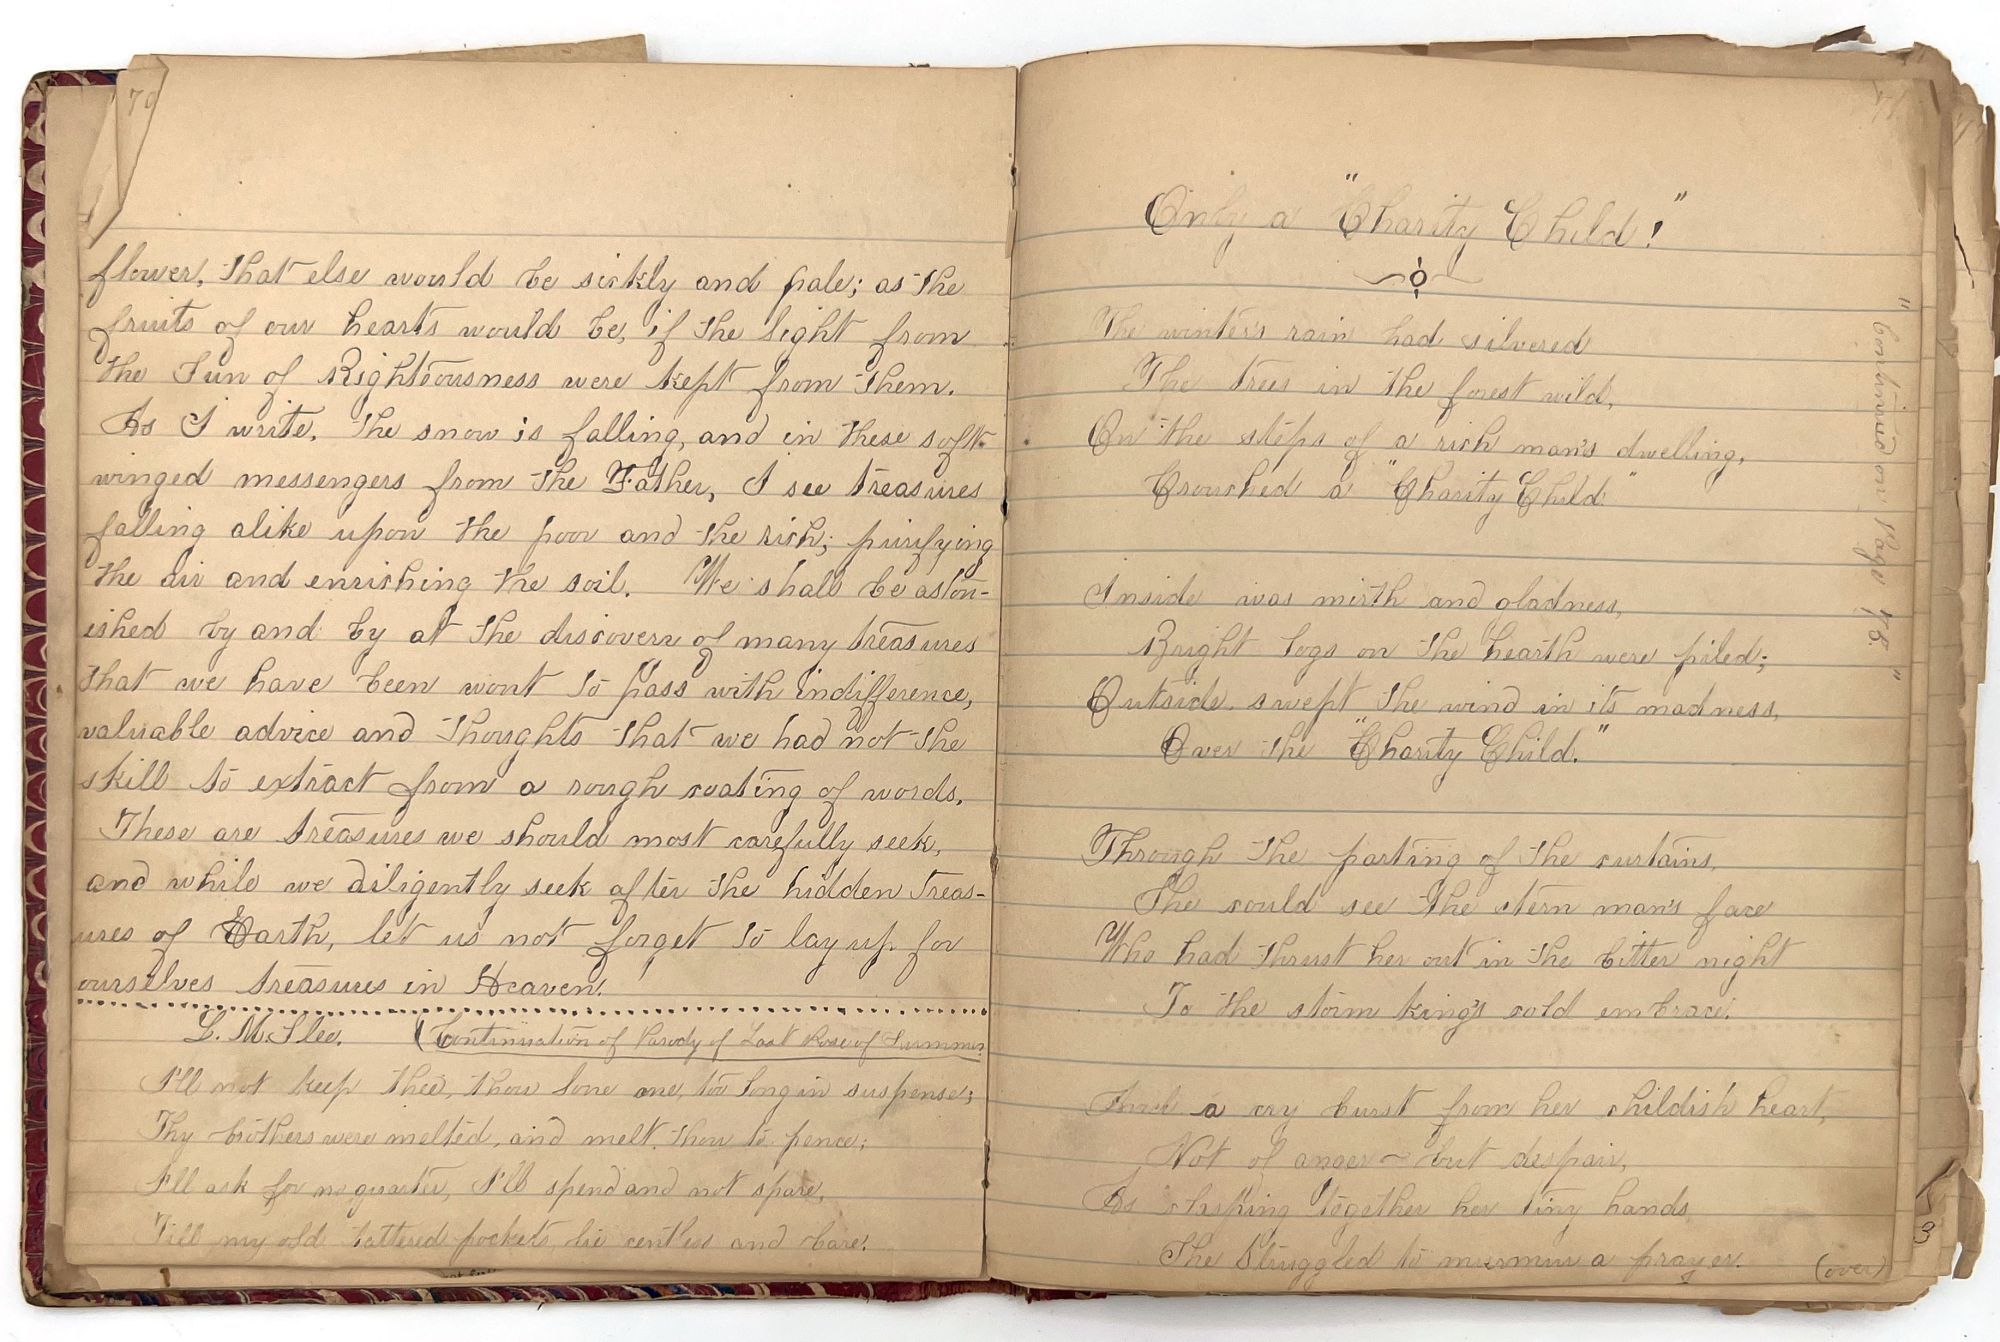 70
flower, that else would be sickly and pale; as the
fruits of our hearts would be, if the light from
the Sun of Righteousness were kept from them.
As I write, the snow is falling, and in these soft
winged messengers from the Father, I see treasures
falling alike upon the poor and the rich; purifying
the air and enriching the soil. We shall be aston-
ished by and by at the discovery of many treasures
that we have been wont to pass with indifference,
valuable advice and thoughts that we had not the
skill to extract from a rough coating of words.
These are treasures we should most carefully seek,
and while we diligently seek after the hidden treas-
ures of Earth, let us not forget to lay up for
ourselves treasures in Heaven.
L. M. Slee. (Continuation of Parody of Last Rose of Summer
I'll not keep thee, thou lone one, too long in suspense;
Thy brothers were melted, and melt, thou to pence;
I'll ask for no quarter, I'll spend and not spare,
Till my old tattered pockets, lie centless and bare.
71
Only a "Charity Child!"
The winter's rain had silvered
The trees in the forest wild,
On the steps of a rich man's dwelling,
Crouched a "Charity Child."
Inside was mirth and gladness,
Bright logs on the hearth were piled;
Outside, swept the wind in its madness,
Over the "Charity Child."
Through the parting of the curtains,
She could see the stern man's face
Who had thrust her out in the bitter night
To the storm king's cold embrace.
a cry burst from her childish heart,
Not of anger – but despair,
As clasping together her tiny hands
She struggled to murmur a prayer.
(over)
"Continued on Page 78."
3